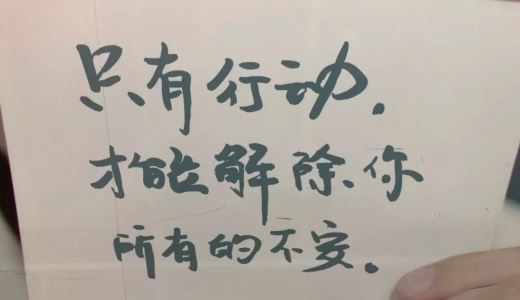 只有行动，
才能解除你
所有的不安。